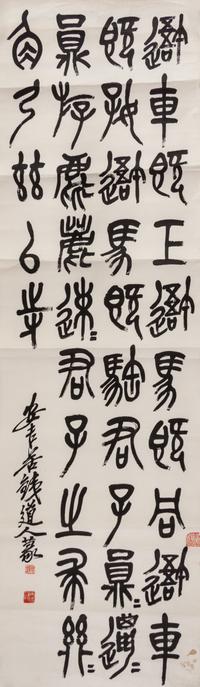 吾車既工吾馬既同吾車
既好吾馬既騊君子員=邋=
員斿麀鹿速=君子之求
角弓茲以寺
安吉苦鐵道人篆